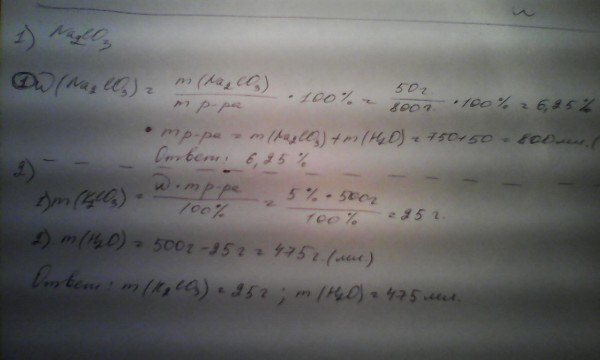 1) Na₂CO₃
① W(Na₂CO₃) = m(Na₂CO₃) / m р-ра • 100% = 50г / 800г • 100% = 6,25%
• m р-ра = m(Na₂CO₃) + m(H₂O) = 750 + 50 = 800 мл.(
Ответ: 6,25%
2)
1) m(K₂CO₃) = W • m р-ра / 100% = 5% • 500г / 100% = 25 г.
2). m(H₂O) = 500г - 25г = 475 г. (мл)
Ответ: m(K₂CO₃) = 25 г ; m(H₂O) = 475 мл.